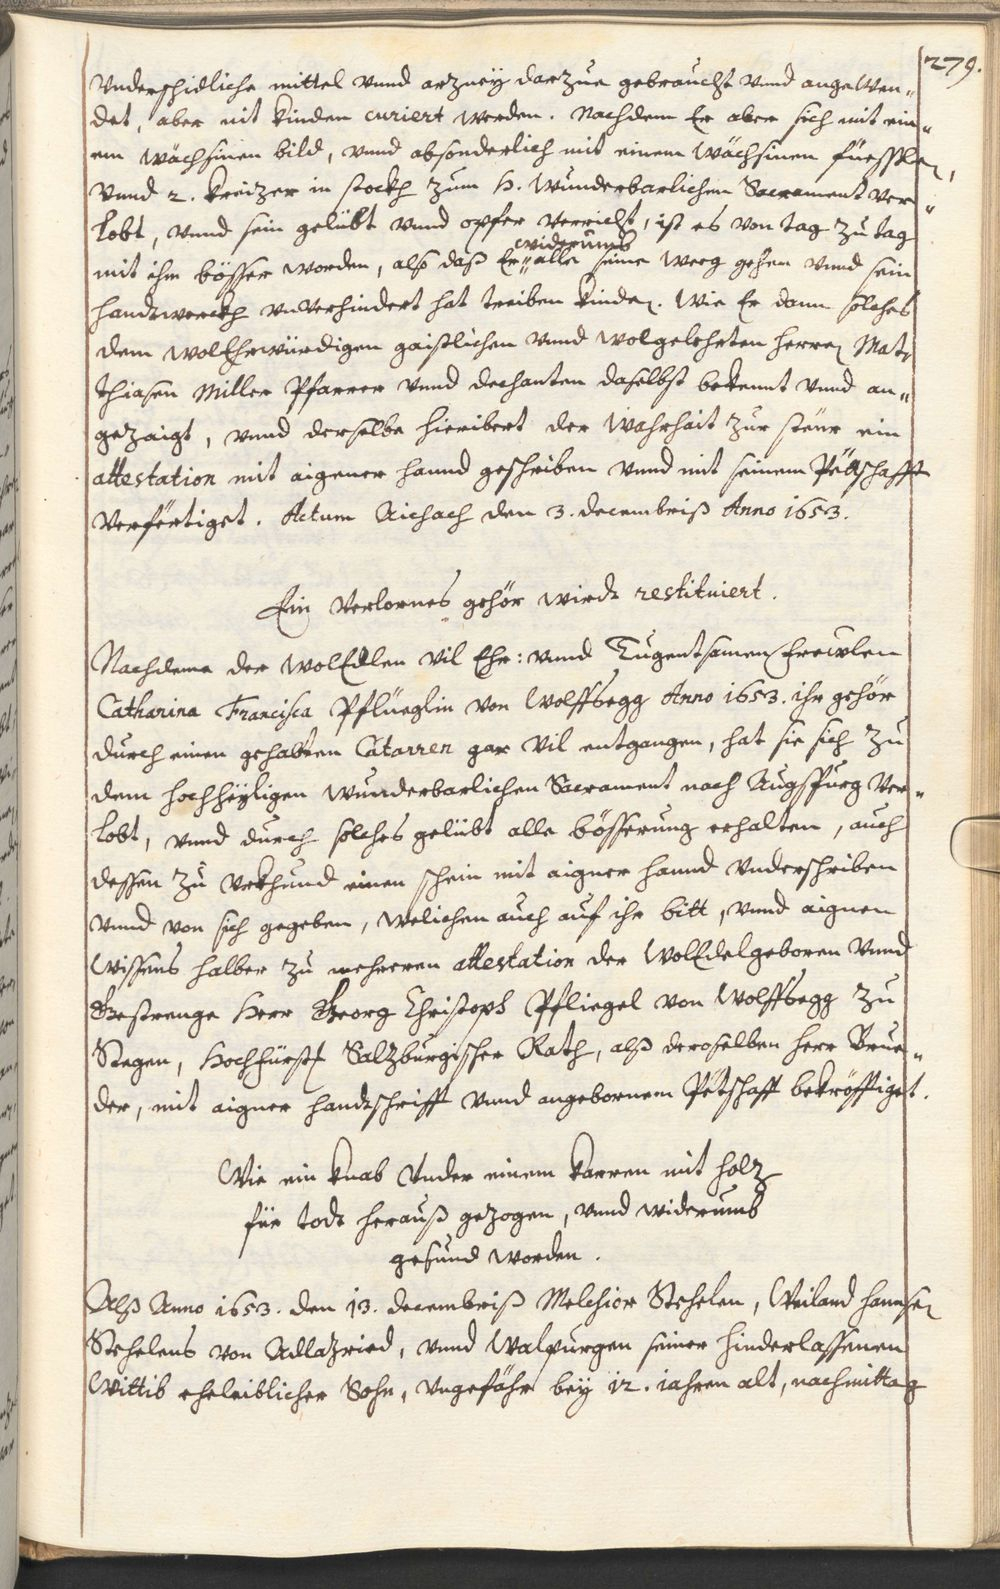 279.
Underschidliche mittel vnnd arzney darzue gebraucht vnnd angewen„
det, aber nit kinden curiert werden. Nachdem Er aber sich mit ein„
em wächsinen bild, vnnd absonderlich mit einem wächsinen füeßlen,
vnnd 2. kreizer in stockh zum H. Wunderbarlichen Sacrament ver„
lobt, vnnd sein gelübt vnnd opfer verricht, ist es von tag zu tag
widerumb
mit ihm bösser worden, also daß Er„ alle seine weeg gehen vnnd sein
handtwerckh vnverhindert hat treiben kinden. Wie Er dann solches
dem wolEhrwürdigen gaistlichen vnnd wolgelehrten herren Mat„
thiasen Miller Pfarrer vnnd dechanten daselbst bekennt vnnd an„
gezaigt, vnnd derselbe hieribert der Wahrhait zur steur ein
attestation mit aigener hannd geschriben vnnd mit seinem Pëttschafft
verfertiget. Actum Aichach den 3. decembriß Anno 1653.
Ein verlornes gehör wirdt restituiert.
Nachdeme der wolEdlen vil Ehr: vnnd Tugentsamen Frewlen
Catharina Francisca Pflüeglin von Wolffsegg Anno 1653. ihr gehör
durch einen gehabten Catarren gar vil entgangen, hat sie sich zu
dem hochheyligen wunderbarlichen Sacrament nach Augspurg ver„
lobt, vnnd durch solches gelübt alle bösserung erhalten, auch
dessen zu vrkhund einen schein mit aigner hannd vnderschriben
vnnd von sich gegeben, welichen auch auf ihr bitt, vnnd aignen
wissens halber zu mehreren attestation der WolEdelgeboren vnnd
Gestrenge Herr Georg Christoph Pfliegel von Wolffsegg zu
Stegen, Hochfürstl Salzburgischer Rath, alß deroselben herr Brue„
der, mit aigner handtschrifft vnnd angebornem Pëtschafft bekröfftiget.
Wie ein knab vnder einem karren mit holz
für todt herauß gezogen, vnnd widerumb
gesund worden.
Alß Anno 1653. den 13. decembriß Melchior Stehelen, Weiland hannsen
Stehelens von Adlazried, vnnd Walpurgen seiner hinderlassenen
Wittib eheleiblicher Sohn, vngefähr bey 12. iahren alt, nachmittag